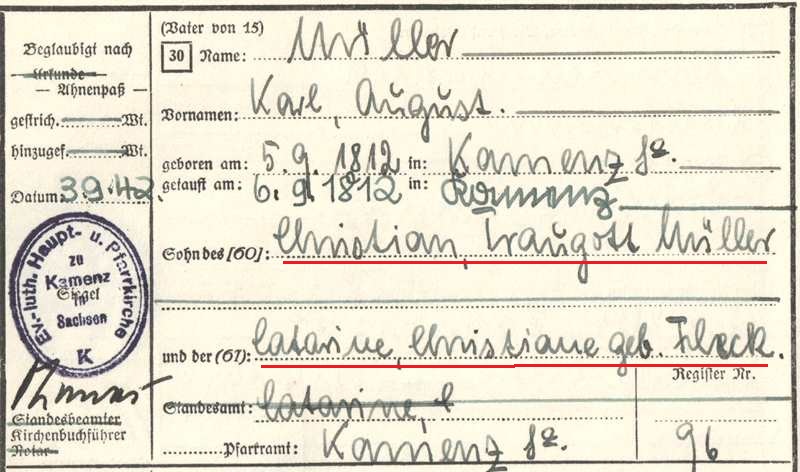 (Vater von 15)
Beglaubigt nach
Urkunde
— Ahnenpaß —
gestrich. Wt.
hinzugef. Wt.
Datum: 3.9.42.
30 Name: Müller
Vornamen: Karl, August.
geboren am: 5.9.1812 in: Kamenz Sa.
getauft am: 6.9.1812 in: Kamenz
Sohn des [60]: Christian, Traugott Müller
und der (61): Catarine, Christiane geb. Fleck.
Register Nr.
Standesamt: Catarine, C
Pfarramt: Kamenz Sa. 96
Ev.-luth. Haupt- u. Pfarrkirche
zu
Kamenz
Siegel
in
Sachsen
K
Standesbeamter
Kirchenbuchführer
Notar